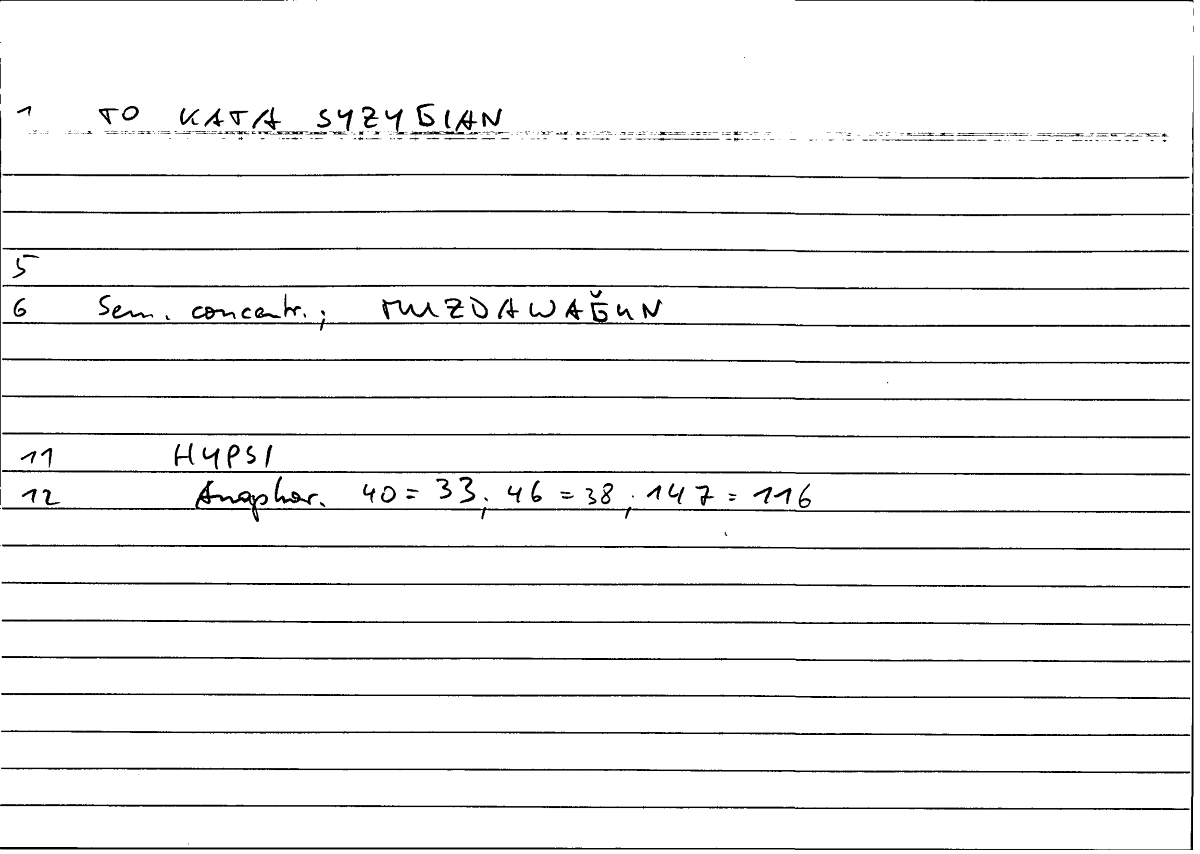 1 TO KATA SYZYGIAN
5
6 Sem. concentr.; MUZDAWAǦUN
11 HYPSI
12 Anaphor. 40 = 33; 46 = 38; 147 = 116